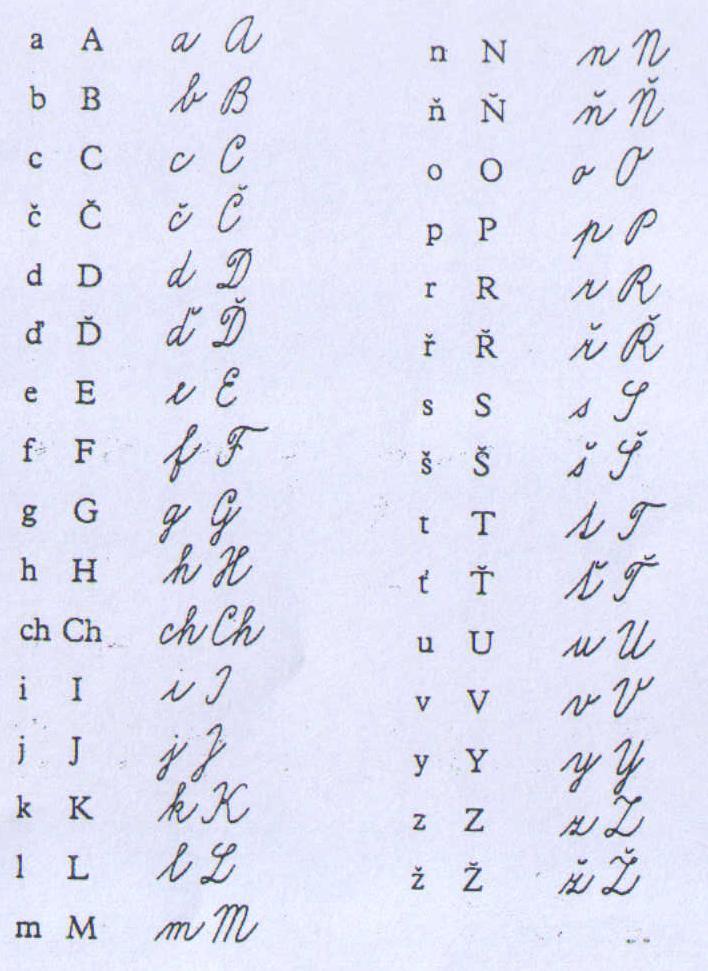 a A a A
b B b B
c C c C
č Č č Č
d D d D
ď Ď ď Ď
e E e E
f F f F
g G g G
h H h H
ch Ch ch Ch
i I i I
j J j J
k K k K
l L l L
m M m M
n N n N
ň Ň ň Ň
o O o O
p P p P
r R r R
ř Ř ř Ř
s S s S
š Š š Š
t T t T
ť Ť ť Ť
u U u U
v V v V
y Y y Y
z Z z Z
ž Ž ž Ž